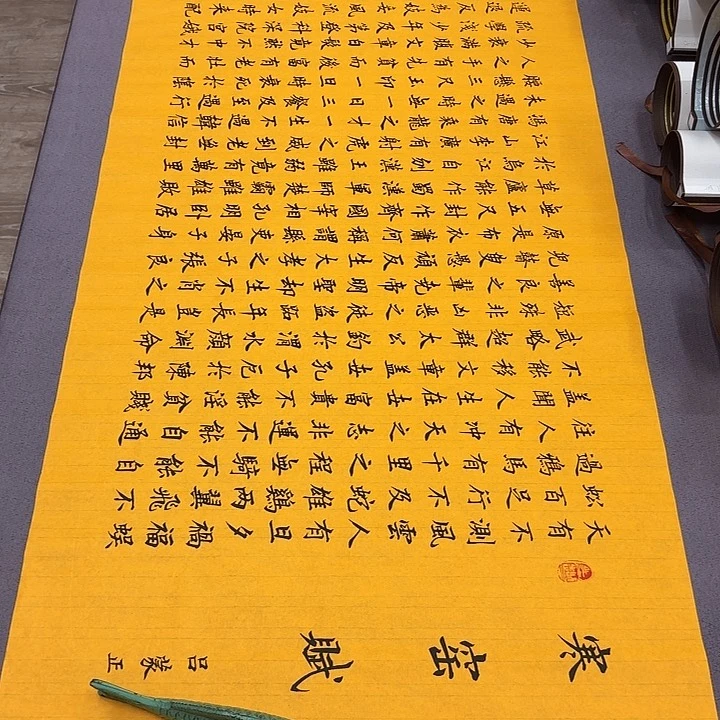 寒窑賦
呂蒙正
天有不測風雲人有旦夕禍福蜈
蚣百足行不及蛇雄雞兩翼飛不
過鴉馬有千里之程無騎不能自
往人有沖天之志非運不能自通
蓋聞人生在世富貴不能淫貧賤
不能移文章蓋世孔子厄於陳邦
武略超群太公釣於渭水顏淵命
短殊非凶惡之徒盜跖年長豈是
善良之輩堯帝明聖却生不肖之
兒瞽叟愚頑反生大孝之子張良
原是布衣蕭何稱謂縣吏晏子身
無五尺封作齊國宰相孔明臥居
草廬能作蜀漢軍師楚霸雖雄敗
於烏江自刎漢王雖弱竟有萬里
江山李廣有射虎之威到老無封
馮唐有乘龍之才一生不遇韓信
未遇之時無一日三餐及至遇行
腰懸三尺玉印一旦時衰死於陰
人之手有先貧而後富有老壯而
少衰滿腹文章白髮竟然不中才
疏學淺少年及第登科深院宮娥
運退反為妓妾風流妓女時來配